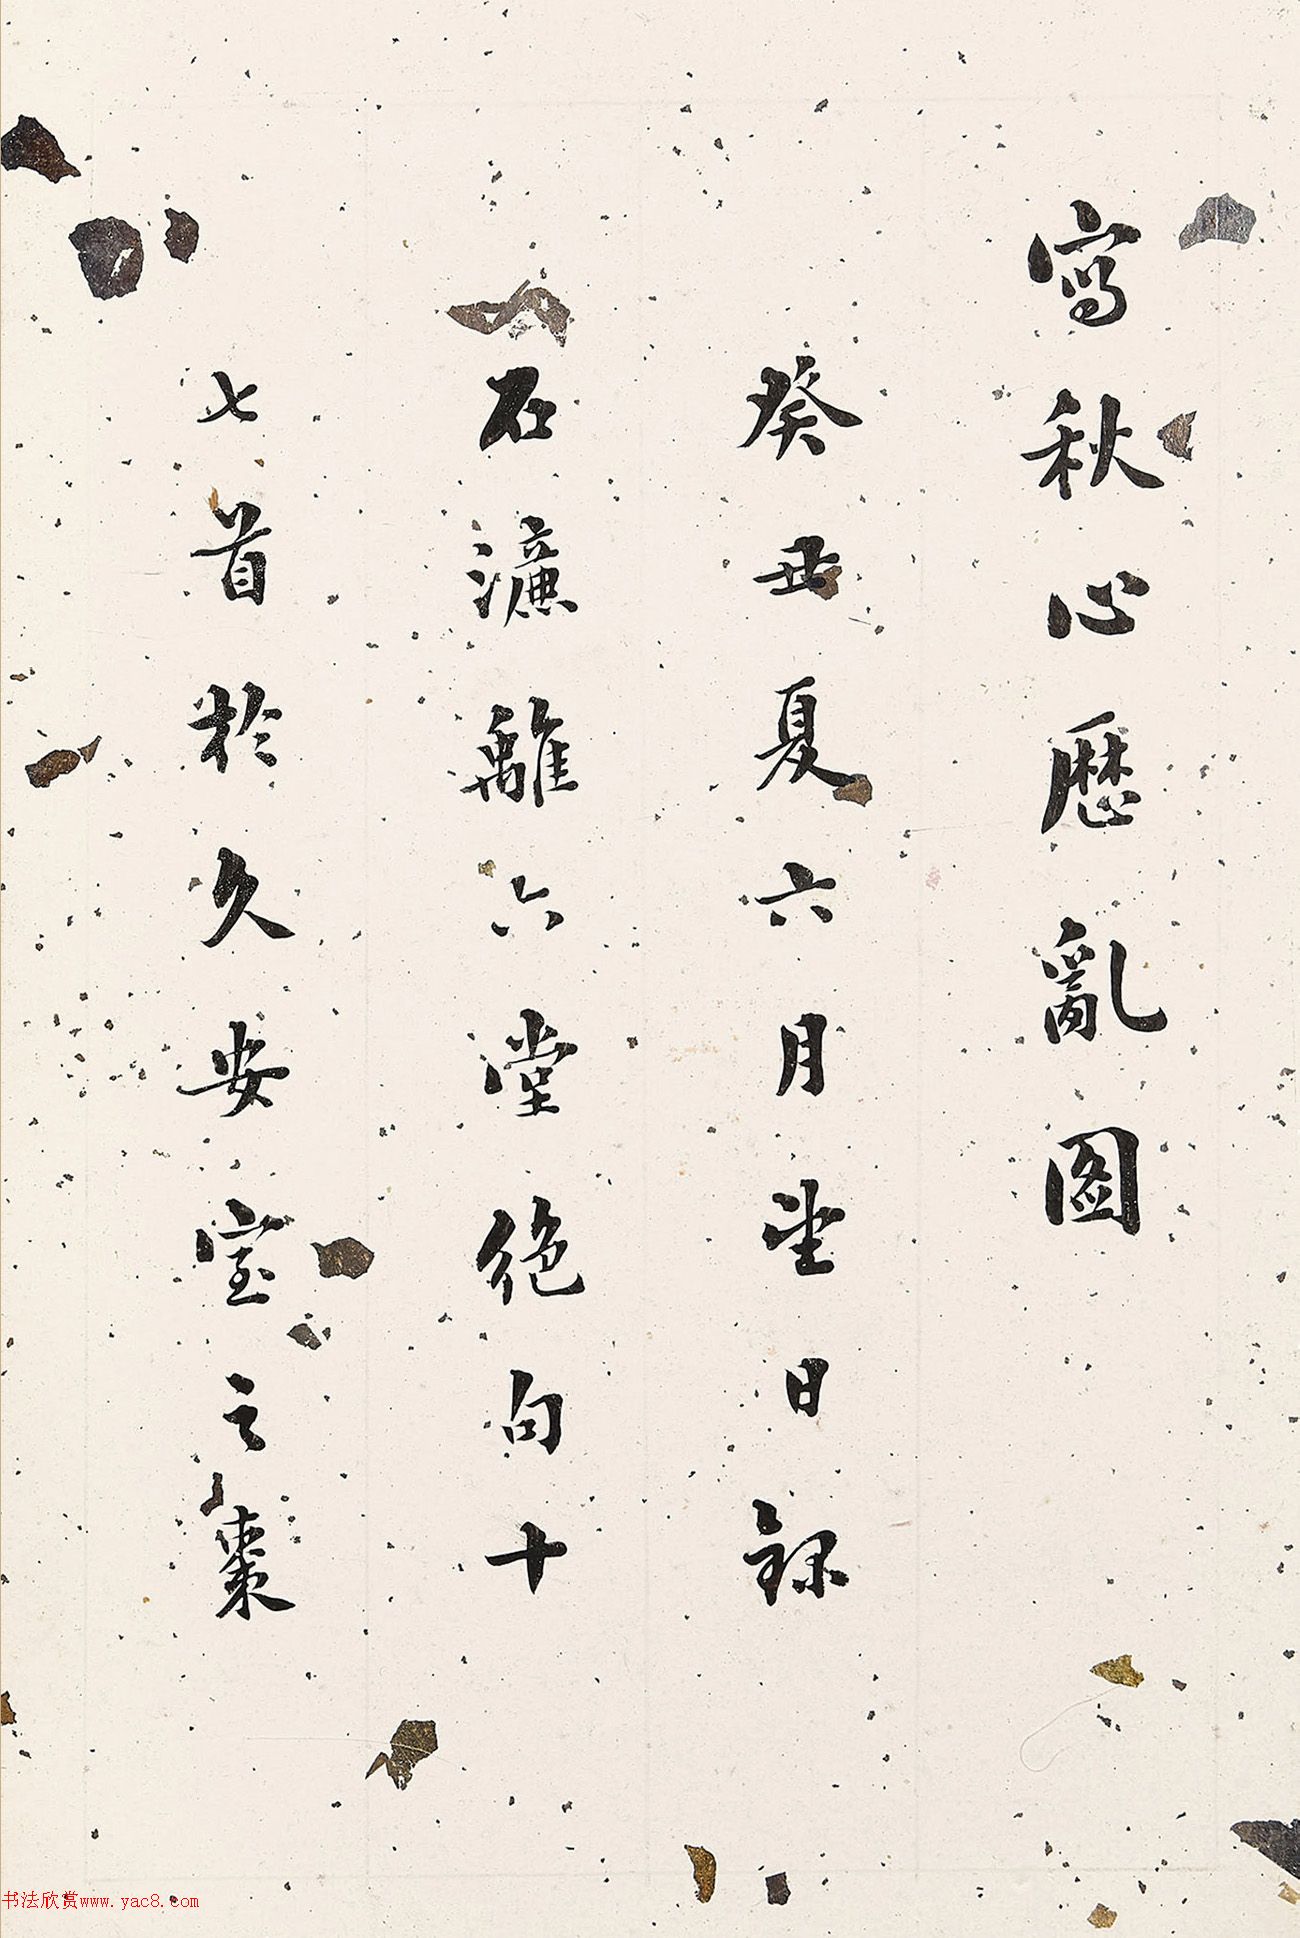 寫秋心歷亂圖
癸丑夏六月望日錄
石濂離六堂絕句十
七首於久安室之
书法欣赏www.yac8.com